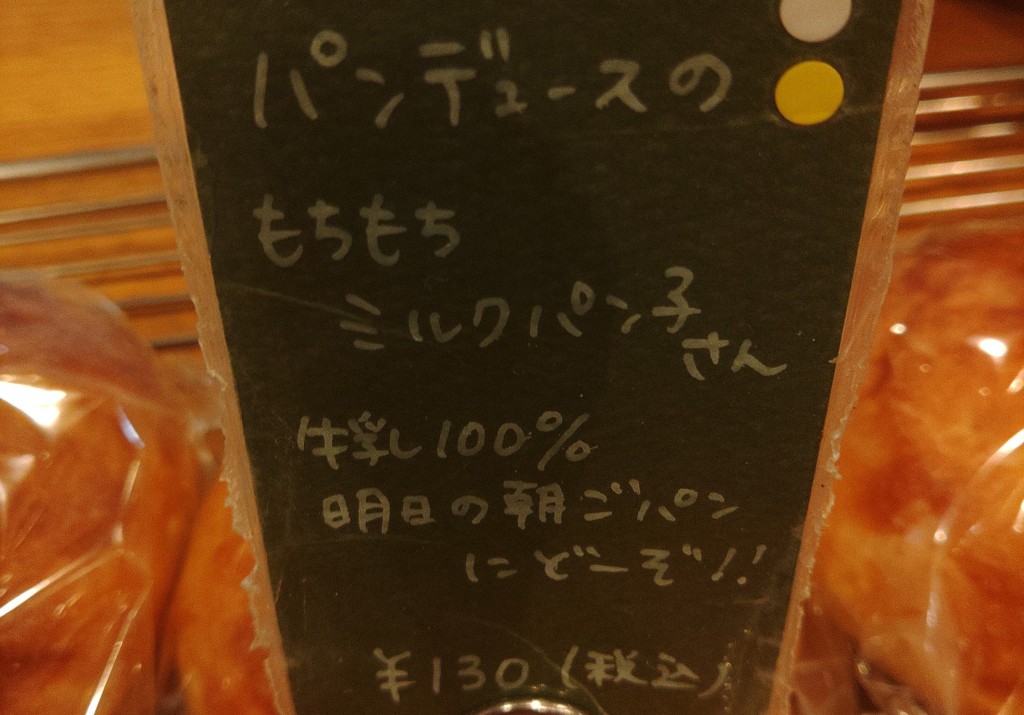 パンデュースの
もちもち
ミルクパン子
さん
牛乳100%
明日の朝ごパン
にどーぞ!!
¥130(税込)